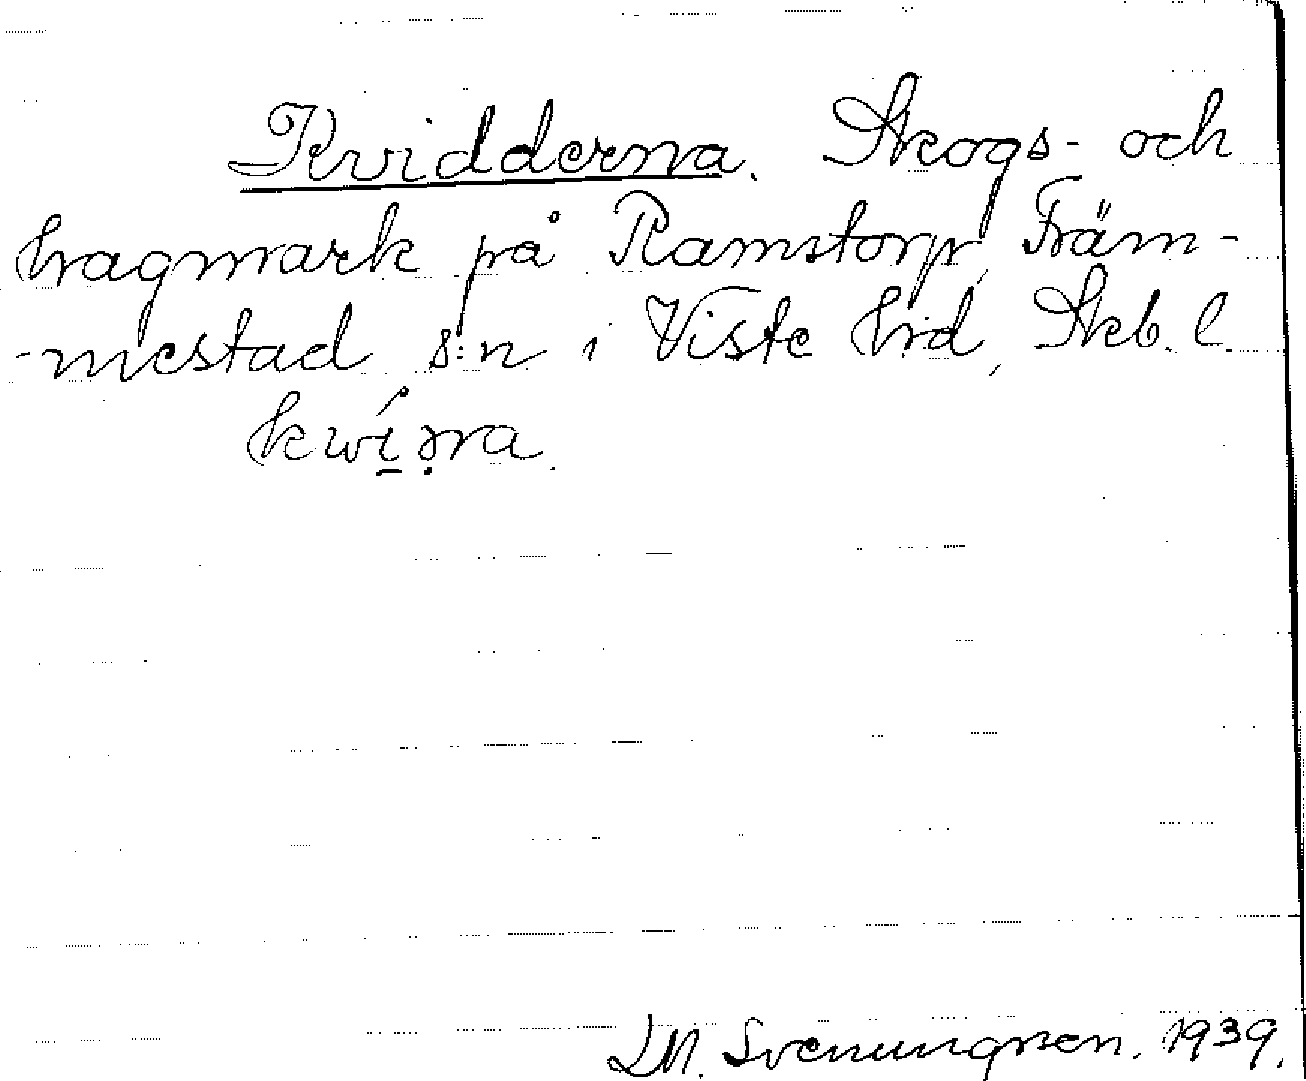 Kvidderna. Skogs- och
hagmark på Ramstorp, Främ-
-mestad s:n i Viste hrd, Skb. l.
kwi
LM. Svenungsson. 1939.